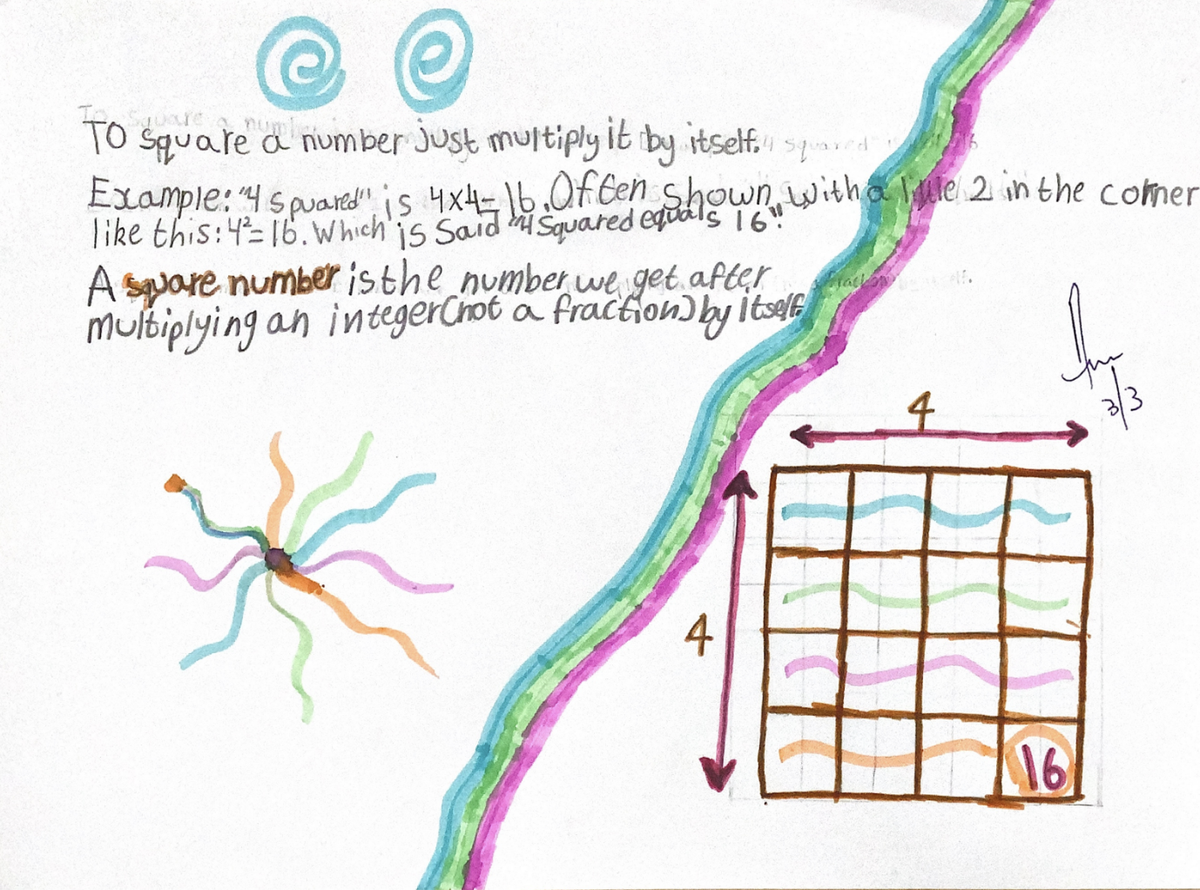 To square a number just multiply it by itself.
Example: "4 spuared" is 4x4=16. Often shown with a little 2 in the corner
like this: 4²=16. Which is said "4 squared equals 16".
A square number is the number we get after
multiplying an integer(not a fraction) by itself.
3/3
4
4
16